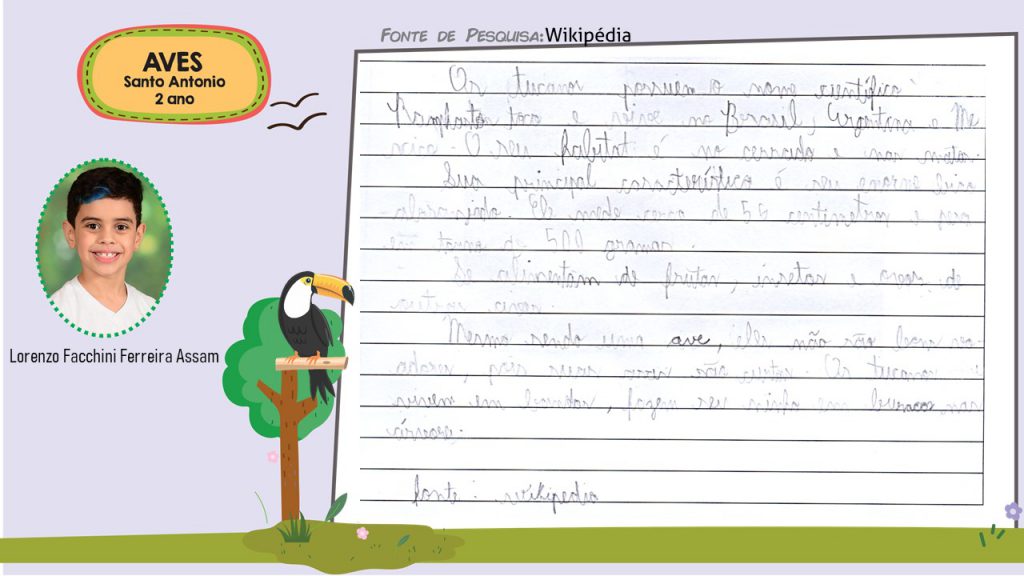 FONTE DE PESQUISA: Wikipédia
AVES
Santo Antonio
2 ano
Os tucanos possuem o nome científico
Ramphastos toco e vivem no Brasil, Argentina e
O seu habitat é no cerrado e nas matas.
Sua principal característica é seu enorme bico
alaranjado. Ele mede cerca de 50 centímetros e
de 500 gramas.
Se alimentam de frutas, insetos e ovos de
outras aves.
Mesmo sendo uma ave, eles não são bons
, pois suas asas são curtas. Os tucanos
vivem em bandos, fazem seu ninho em buracos nas
árvores.
fonte: wikipedia
Lorenzo Facchini Ferreira Assam